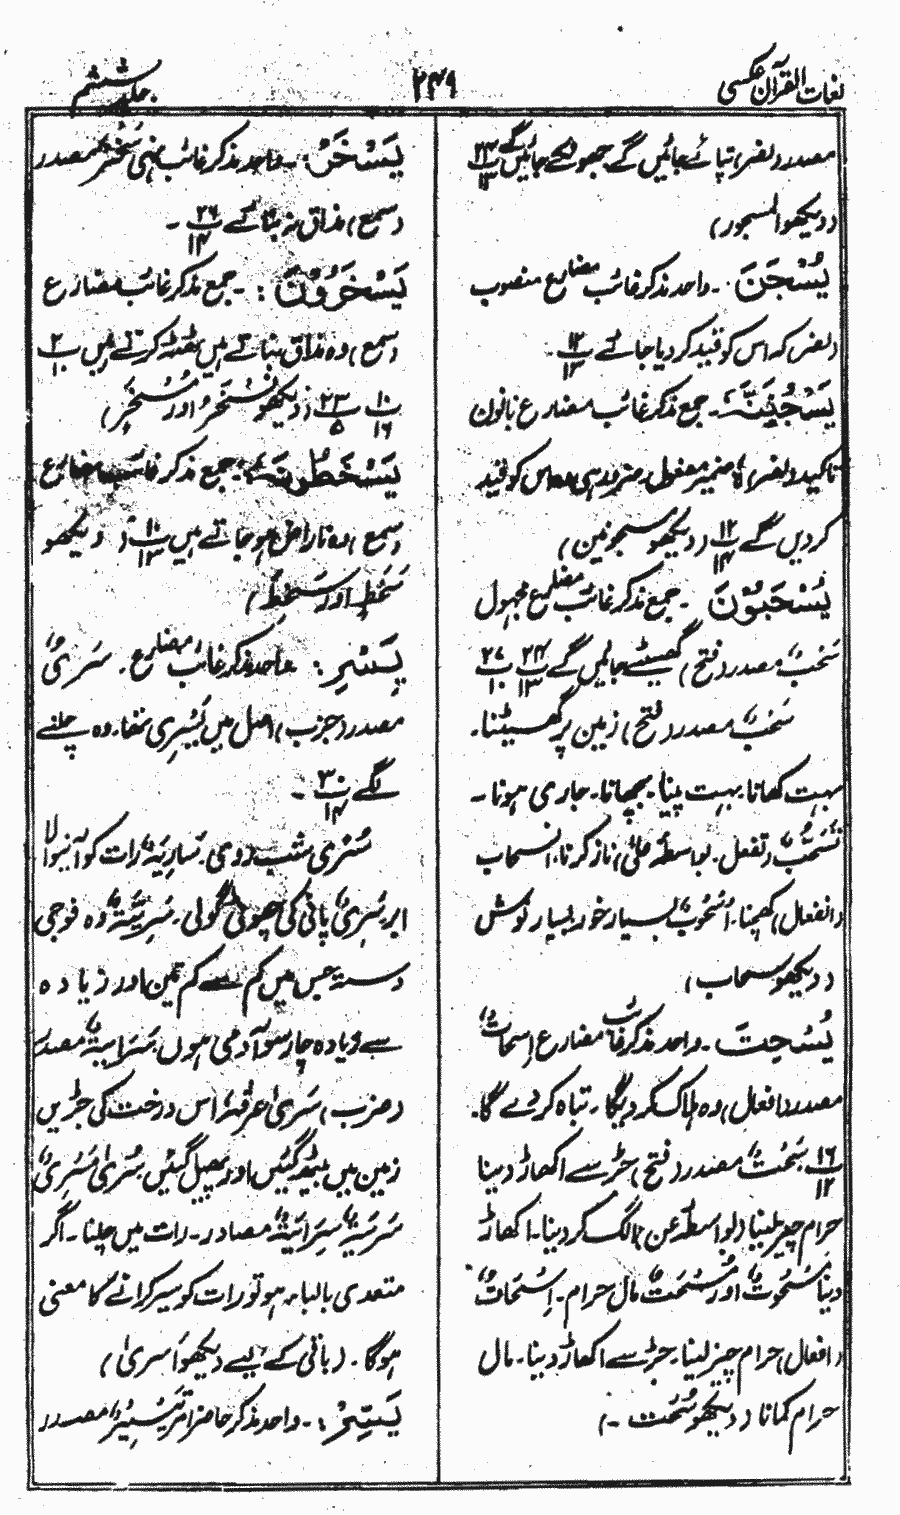 لغات القرآن عکسی
۲۴۹
جلد ششم
مصدر (نصر) تپائے جائیں گے۔ جھونکے جائیں گے ۲۴/۱۳
(دیکھو المسجور)
یُسْجَنَ۔ واحد مذکر غائب مضارع منصوب
(نصر) کہ اس کو قید کر دیا جائے ۱۲/۱۳
یَسْجُنَنَّہٗ۔ جمع مذکر غائب مضارع بانون
تاکید (نصر) ہٗ ضمیر مفعول ضرور ہی وہ اس کو قید
کر دیں گے ۱۲/۱۴ (دیکھو مسجونین)
یُسْحَبُوْنَ۔ جمع مذکر غائب مضارع مجہول
سَحْبٌ مصدر (فتح) گھسیٹے جائیں گے ۲۴/۱۳ ۲۷/۱۰
سَحْبٌ مصدر (فتح) زمین پر گھسیٹنا۔
بہت کھانا۔ بہت پینا۔ بچھانا۔ جاری ہونا۔
تَسَحُّبٌ (تفعل) بواسطہ علیٰ) ناز کرنا۔ انسحاب
(انفعال) کھچنا۔ اُسْحُوبٌ بسیار خور بسیار نوش
(دیکھو سحاب)
یُسْحِتَ۔ واحد مذکر غائب مضارع اِسْحَاتٌ
مصدر (افعال) وہ ہلاک کر دیگا۔ تباہ کر دے گا۔
۱۶/۱۲ سَحْتٌ مصدر (فتح) جڑ سے اکھاڑ دینا
حرام چیز لینا (بواسطہ عن) الگ کر دینا۔ اکھاڑ
دینا مَسْحُوتٌ اور مُسْحَتٌ مال حرام۔ اِسْحَاتٌ
(افعال) حرام چیز لینا۔ جڑ سے اکھاڑ دینا۔ مال
حرام کمانا (دیکھو سُحْت۔)
یَسْخَرْ:۔ واحد مذکر غائب نہی سُخْرٌ مصدر
(سمع) مذاق نہ بنائے ۲۶/۱۴ ۔
یَسْخَرُوْنَ:۔ جمع مذکر غائب مضارع
(سمع) وہ مذاق بناتے ہیں ٹھٹھہ کرتے ہیں ۲/۱۰
۱۰/۱۶ ۲۳/۵ (دیکھو نَسْخَرُ اور مُسَخَّر)
یَسْخَطُوْنَ:۔ جمع مذکر غائب مضارع
(سمع) وہ ناراض ہو جاتے ہیں ۱۰/۱۳ (دیکھو
سَخِطَ اور سَخَطٌ)
یَسْرِ:۔ واحد مذکر غائب مضارع۔ سَرْیٌ
مصدر (ضرب) اصل میں یَسْرِی تھا۔ وہ چلنے
لگے ۳۰/۱۴ ۔
سُرٰی شب روی۔ سَارِیَۃٌ رات کو آنیوالا
ابر سَرِیٌّ پانی کی چھوٹی گولی۔ سَرِیَّۃٌ وہ فوجی
دستہ جس میں کم سے کم تین اور زیادہ
سے زیادہ چار سو آدمی ہوں سَرَایَۃٌ مصدر
(ضرب) سَرٰی عِرْقُہٗ اس درخت کی جڑیں
زمین میں بیٹھ گئیں اور پھیل گئیں سُرٰی سَرْیٌ
سَرْیَۃٌ سِرَایَۃٌ مصادر۔ رات میں چلنا۔ اگر
متعدی بالباء ہو تو رات کو سیر کرانے کا معنی
ہوگا۔ (باقی کے لیے دیکھو اَسریٰ)
یَسِّرْ:۔ واحد مذکر حاضر امر تَیْسِیْرٌ مصدر